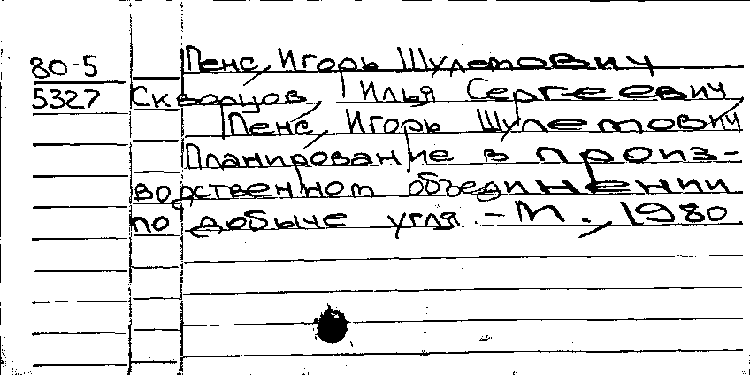 80-5 Пенс, Игорь Шулемович
5327 Скворцов, Илья Сергеевич
Пенс, Игорь Шулемович
Планирование в произ-
водственном объединении
по добыче угля. - М., 1980